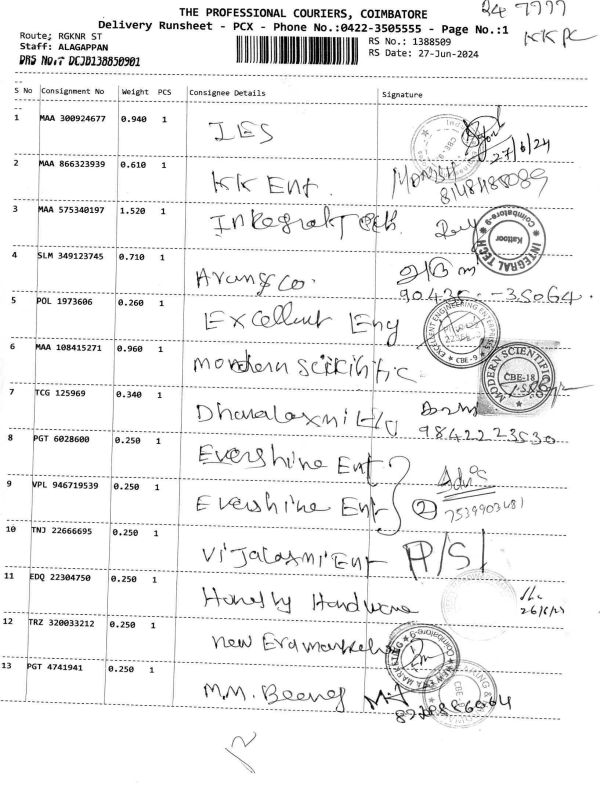 THE PROFESSIONAL COURIERS, COIMBATORE
Delivery Runsheet - PCX - Phone No.:0422-3505555 - Page No.:1
Route; RGKNR ST
Staff: ALAGAPPAN
DRS No.: DCJB138850901
RS No.: 1388509
RS Date: 27-Jun-2024
KKPC
S No Consignment No Weight PCS Consignee Details Signature
1 MAA 300924677 0.940 1 IES 27/6/24
2 MAA 866323939 0.610 1 KK Ent.
3 MAA 575340197 1.520 1 Integral Tech.
INTEGRAL TECH Kattoor Coimbatore-9
4 SLM 349123745 0.710 1 Arang co.
5 POL 1973606 0.260 1 Excellent Eng
EXCELLENT ENGINEERING ENTERPRISES CBE-9
6 MAA 108415271 0.960 1 mordern scitihific
MODERN SCIENTIFIC CBE-18
7 TCG 125969 0.340 1 Dhanalaxmi 9842223530
8 PGT 6028600 0.250 1 Evershine Ent
9 VPL 946719539 0.250 1 Evershine Ent 2 7539903481
10 TNJ 22666695 0.250 1 Vijalaxmi Ent P/S/
11 EDQ 22304750 0.250 1 Honesty Hardware
12 TRZ 320033212 0.250 1 new Era
NEW ERA MARKETING Coimbatore-9
13 PGT 4741941 0.250 1 M.M.
CBE
12